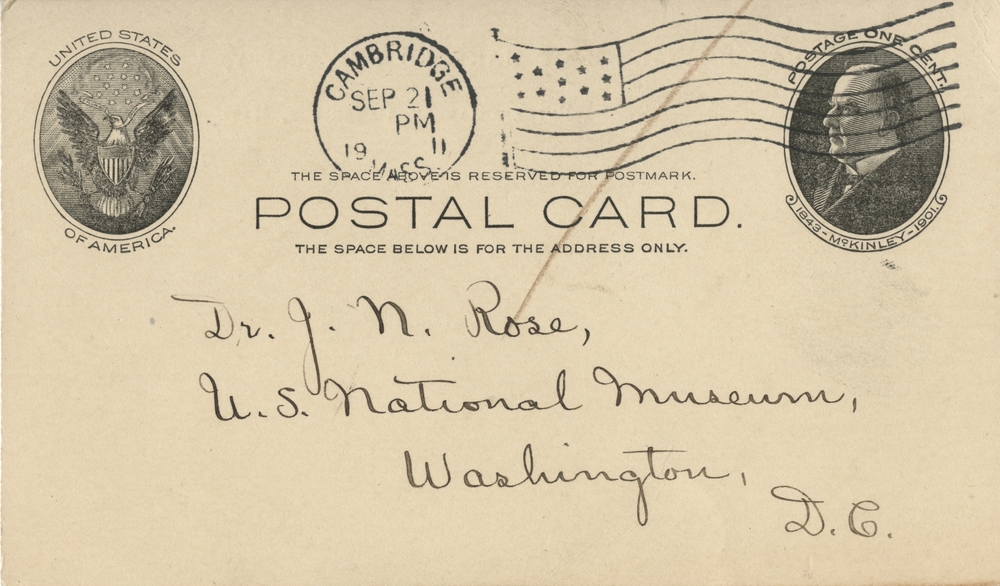 UNITED STATES
OF AMERICA.
CAMBRIDGE
SEP 21
PM
19 11
MASS.
POSTAGE ONE CENT.
1843-McKINLEY-1901.
THE SPACE ABOVE IS RESERVED FOR POSTMARK.
POSTAL CARD.
THE SPACE BELOW IS FOR THE ADDRESS ONLY.
Dr. J. N. Rose,
U.S. National Museum,
Washington,
D.C.